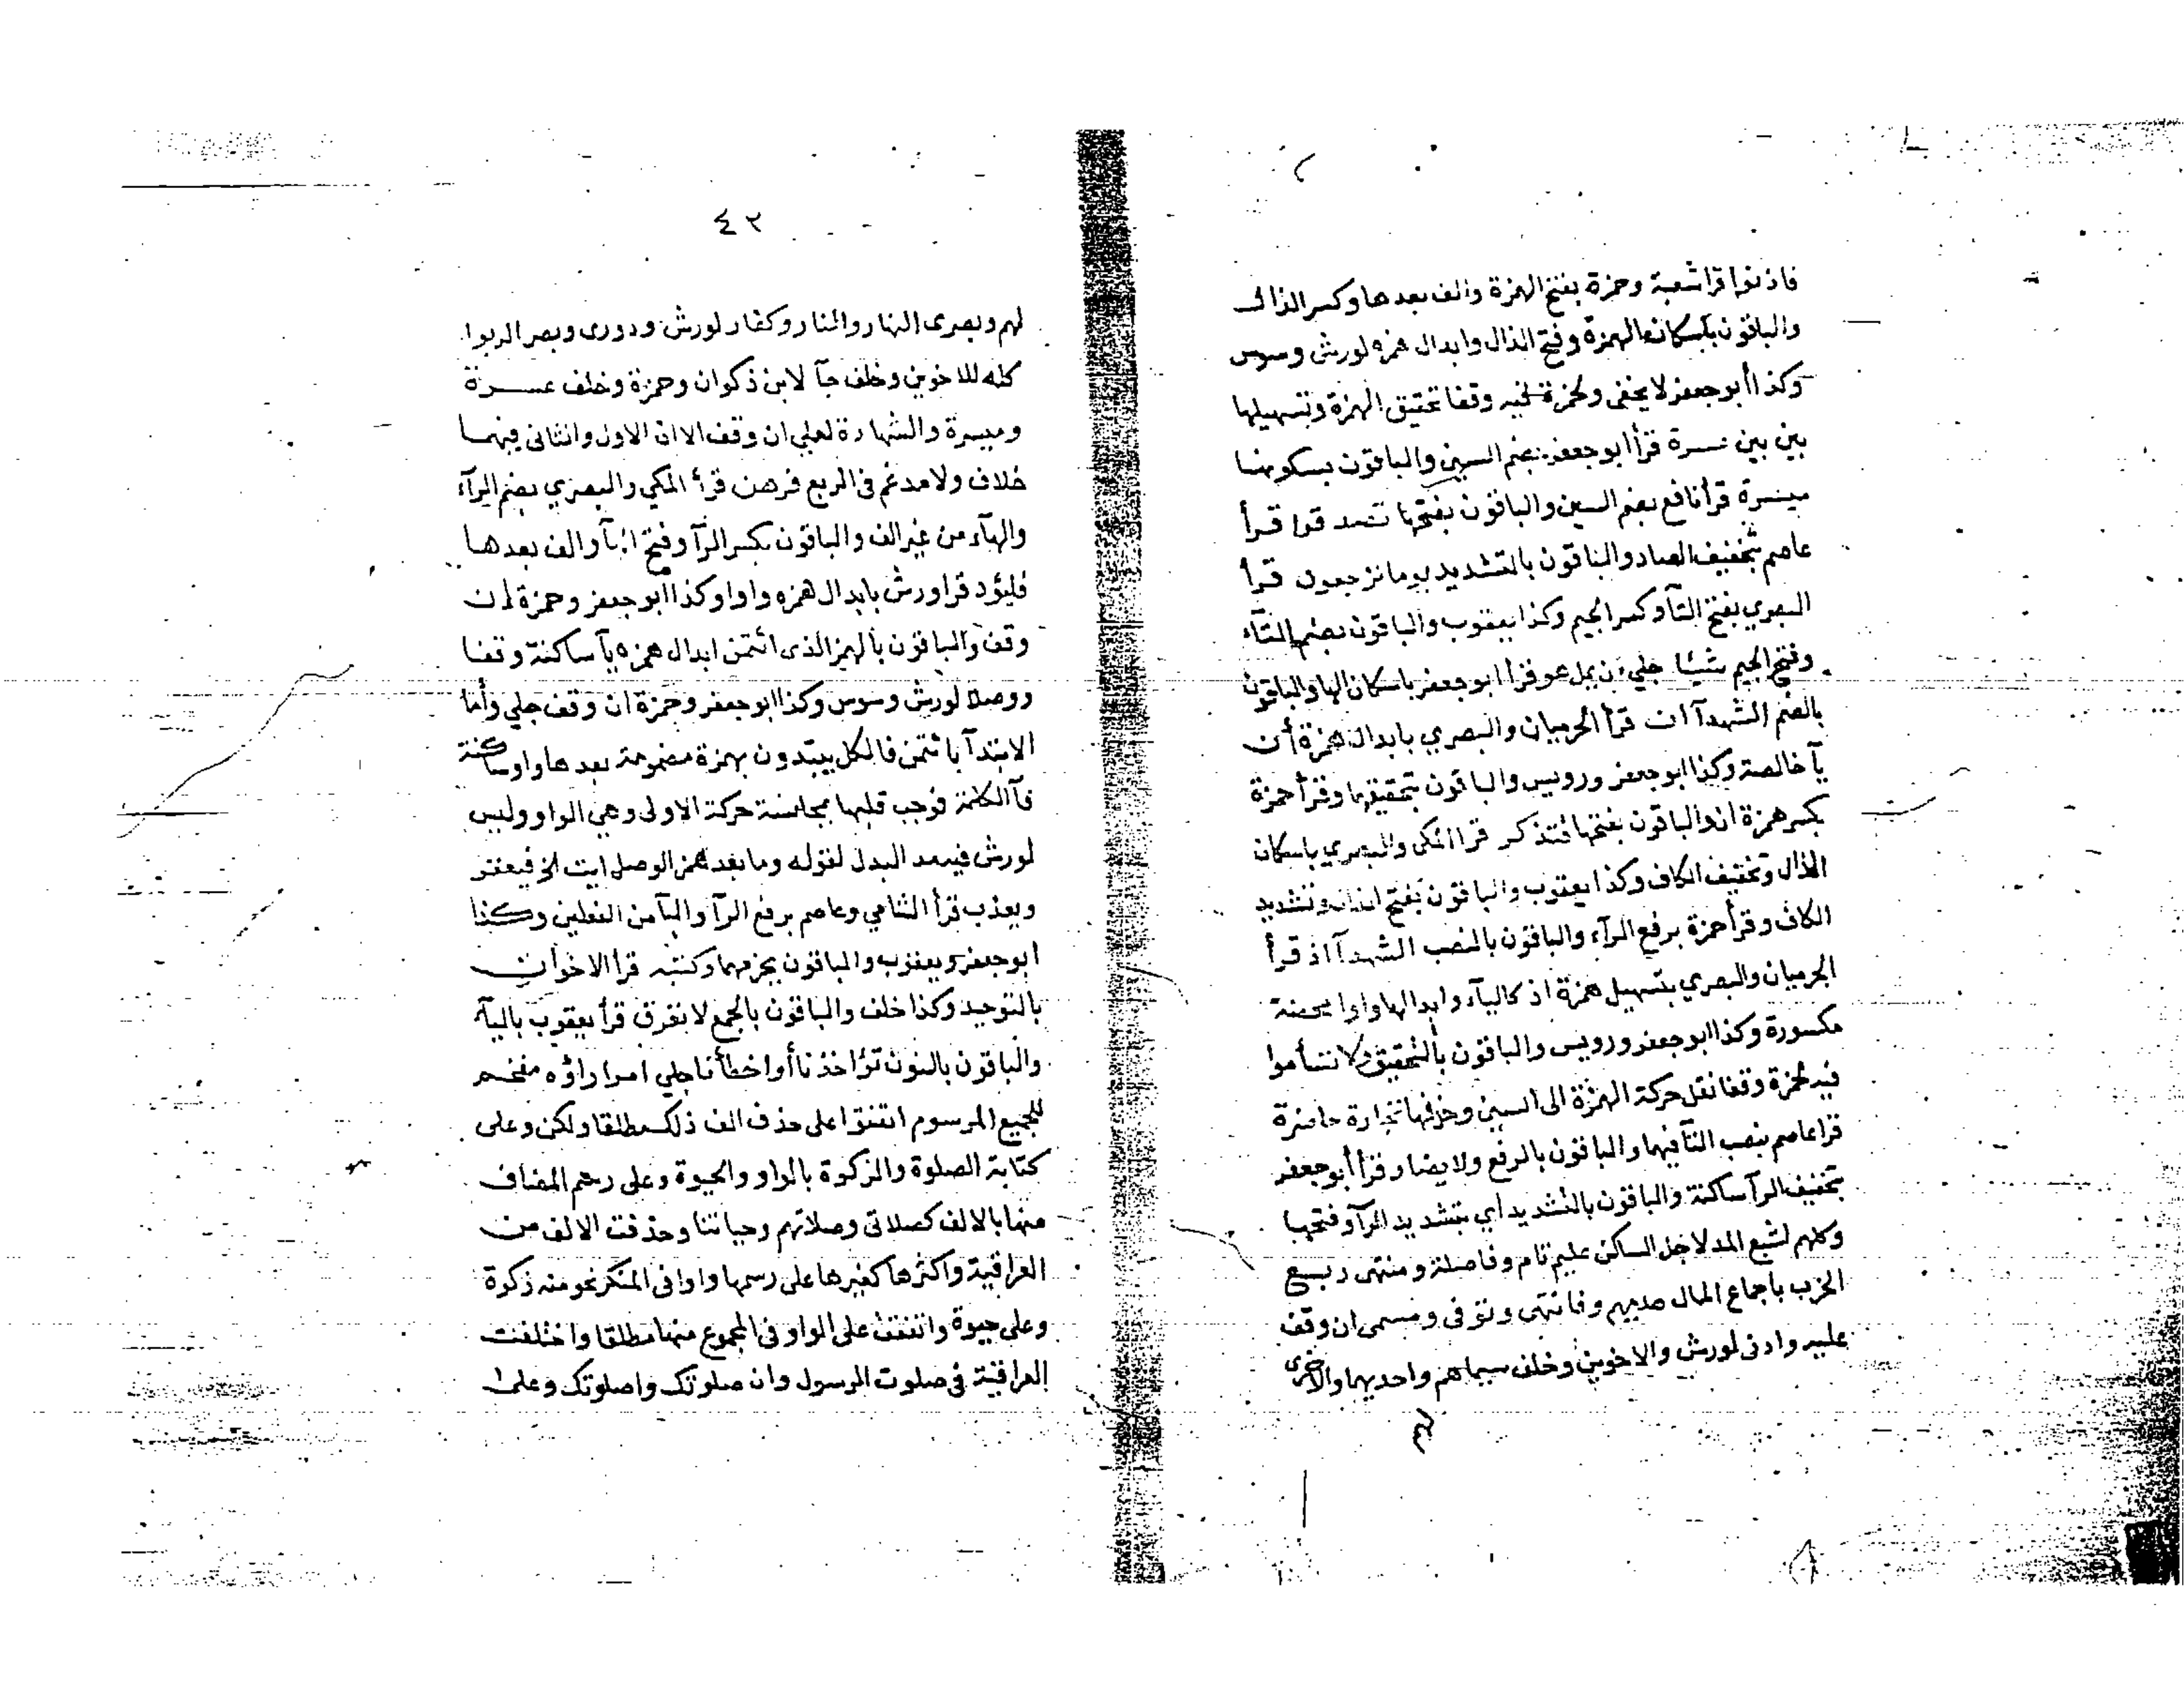 فاذنوا قرا شعبة وحمزة بفتح الهمزة والف بعدها وكسر الذال
والباقون باسكان الهمزة وفتح الذال وابدال همزه لورش وسوس
وكذا أبو جعفر لا يخفى ولحمزة فيه وقفا تحقيق الهمزة وتسهيلها
بين بين عسرة قرأ ابو جعفر بضم السين والباقون بسكونها
ميسرة قرأ نافع بضم السين والباقون بفتحها تصدقوا قرأ
عاصم بتخفيف الصاد والباقون بالتشديد يوما ترجعون قرأ
البصري بفتح التآ وكسر الجيم وكذا يعقوب والباقون بضم التآء
وفتح الجيم شيئا جلي ان يمل هو قرأ ابو جعفر باسكان الها والباقون
بالضم الشهدآ ان قرأ الحرميان والبصري بابدال همزة أن
يآ خالصة وكذا ابو جعفر ورويس والباقون بتحقيقها وقرأ حمزة
بكسر همزة ان والباقون بفتحها فتذكر قرا المكي والبصري باسكان
الذال وتخفيف الكاف وكذا يعقوب والباقون بفتح الذال وتشديد
الكاف وقرأ حمزة برفع الرآء والباقون بالنصب الشهدآ اذ قرأ
الحرميان والبصري بتسهيل همزة اذ كاليآء وابدالها واوا محضة
مكسورة وكذا ابو جعفر ورويس والباقون بالتحقيق ولا تسأموا
فيه لحمزة وقفا نقل حركة الهمزة الى السين وحذفها تجارة حاضرة
قرا عاصم بنصب التآ فيهما والباقون بالرفع ولا يضار قرأ أبو جعفر
بتخفيف الرآ ساكنة والباقون بالتشديد أي بتشديد الرآ وفتحها
وكلهم لشبع المد لاجل الساكن عليم تام وفاصلة ومنتهى ربع
الحزب باجماع الممال هديهم وفانتهى وتوفى ومسمى ان وقف
عليه وادنى لورش والاخوين وخلف سيماهم واحديهما والاخرى
٤٢
لهم وبصرى النهار والنار وكفار لورش ودورى وبصر الربوا
كله للاخوين وخلف جآ لابن ذكوان وحمزة وخلف عسرة
وميسرة والشهادة لعلي ان وقف الا ان الاول والثانى فيهما
خلاف ولا مدغم فى الربع فرهن قرأ المكي والبصري بضم الرآء
والهآء من غير الف والباقون بكسر الرآ وفتح الهآ والف بعدها
فليؤد قرا ورش بابدال همزه واوا وكذا ابو جعفر وحمزة ان
وقف والباقون بالهمز الذى ائتمن ابدال همزه يآ ساكنة وقفا
ووصلا لورش وسوس وكذا ابو جعفر وحمزة ان وقف جلي وأما
الابتدآ بائتمن فالكل يبتدون بهمزة مضمومة بعدها واو ساكنة
فآ الكلمة فوجب قلبها بمجانسة حركة الاولى وهي الواو وليس
لورش فيه مد البدل لقوله وما بعد همز الوصل ايت الخ فيغفر
ويعذب قرأ الشامي وعاصم برفع الرآ والبآ من الفعلين وكذا
ابو جعفر ويعقوب والباقون بجزمهما وكتبه قرا الاخوان
بالتوحيد وكذا خلف والباقون بالجمع لا نفرق قرأ يعقوب باليآء
والباقون بالنون تؤاخذنا أو اخطأنا جلي اصرا راؤه مفخم
للجميع المرسوم اتفقوا على حذف الف ذلك مطلقا ولكن وعلى
كتابة الصلوة والزكوة بالواو والحيوة وعلى رسم المضاف
منها بالالف كصلاتى وصلاتهم وحياتنا وحذفت الالف من
العراقية واكثرها كغيرها على رسمها واوا فى المنكر نحو منه زكوة
وعلى حيوة واتفقت على الواو فى المجموع منها مطلقا واختلفت
العراقية فى صلوت الرسول وان صلوتك واصلوتك وعلى